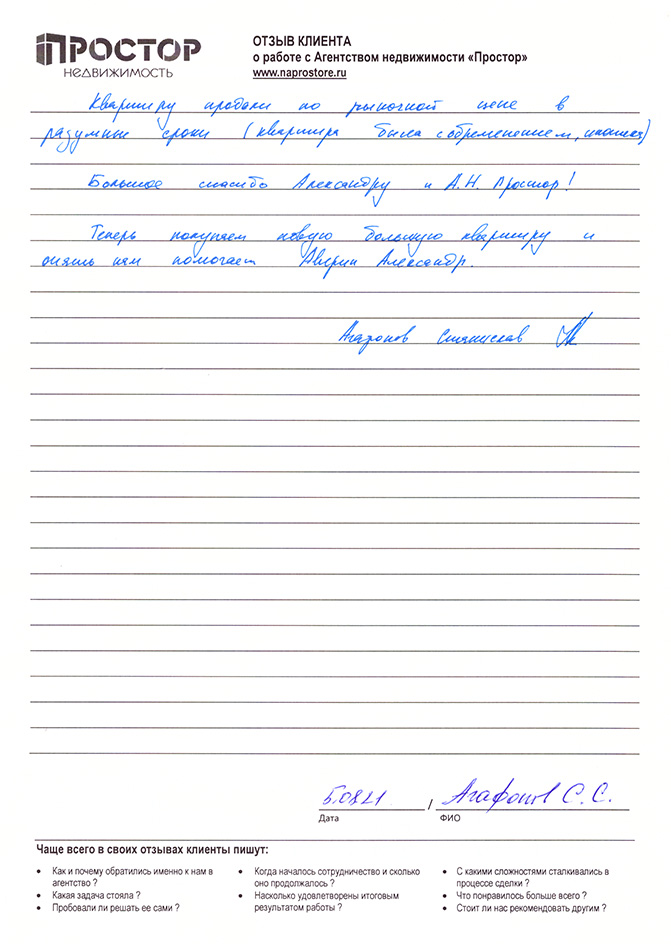 ПРОСТОР
НЕДВИЖИМОСТЬ
ОТЗЫВ КЛИЕНТА
о работе с Агентством недвижимости «Простор»
www.naprostore.ru
Квартиру продали по рыночной цене в
разумные сроки (квартира была с обременением, ипотека)
Большое спасибо Александру и А.Н. Простор!
Теперь покупаем новую большую квартиру и
опять нам помогает Аверин Александр.
Агафонов Станислав
5.08.21 / Агафонов С. С.
Дата ФИО
Чаще всего в своих отзывах клиенты пишут:
• Как и почему обратились именно к нам в
агентство ?
• Какая задача стояла ?
• Пробовали ли решать ее сами ?
• Когда началось сотрудничество и сколько
оно продолжалось ?
• Насколько удовлетворены итоговым
результатом работы ?
• С какими сложностями сталкивались в
процессе сделки ?
• Что понравилось больше всего ?
• Стоит ли нас рекомендовать другим ?